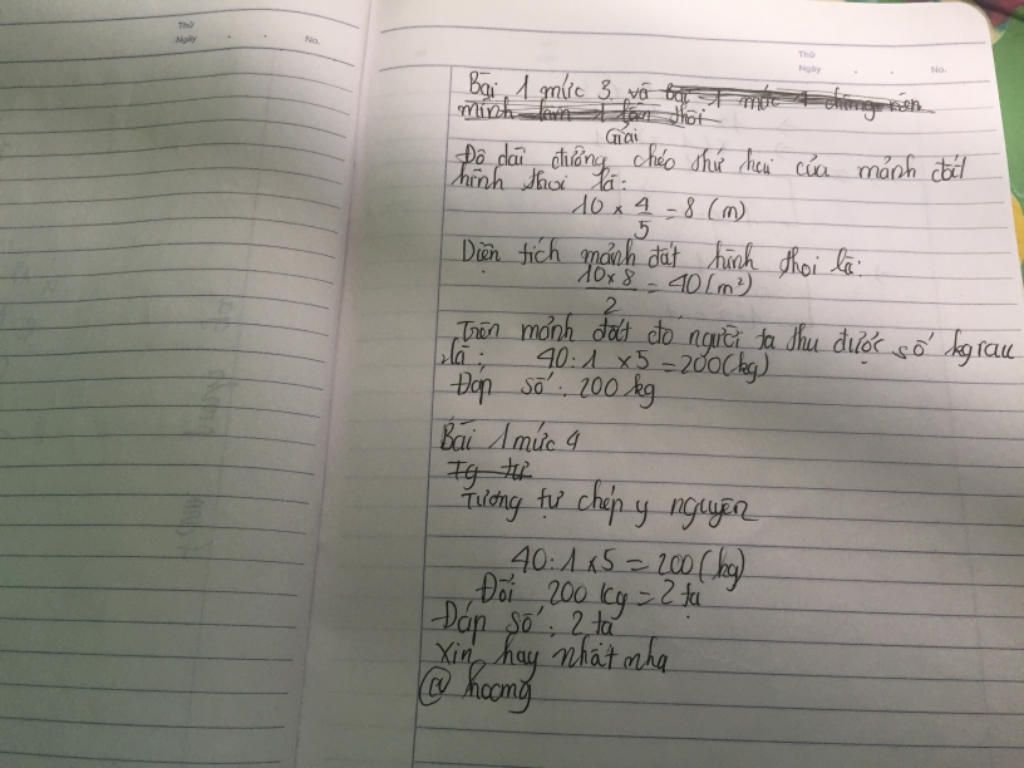 Thứ
Ngày . . No.
Thứ
Ngày . . No.
Bài 1 mức 3 và bài 1 mức 4 chung nên
mình làm 1 lần thôi
Giải
Độ dài đường chéo thứ hai của mảnh đất
hình thoi là:
10 × 4/5 = 8 (m)
Diện tích mảnh đất hình thoi là:
10 × 8 / 2 = 40 (m²)
Trên mảnh đất đó người ta thu được số kg rau
là: 40 : 1 × 5 = 200 (kg)
Đáp số: 200 kg
Bài 1 mức 4
Tg tự
Tương tự chép y nguyên
40 : 1 × 5 = 200 (kg)
Đổi 200 kg = 2 tạ
Đáp số: 2 tạ
Xin hay nhất nha